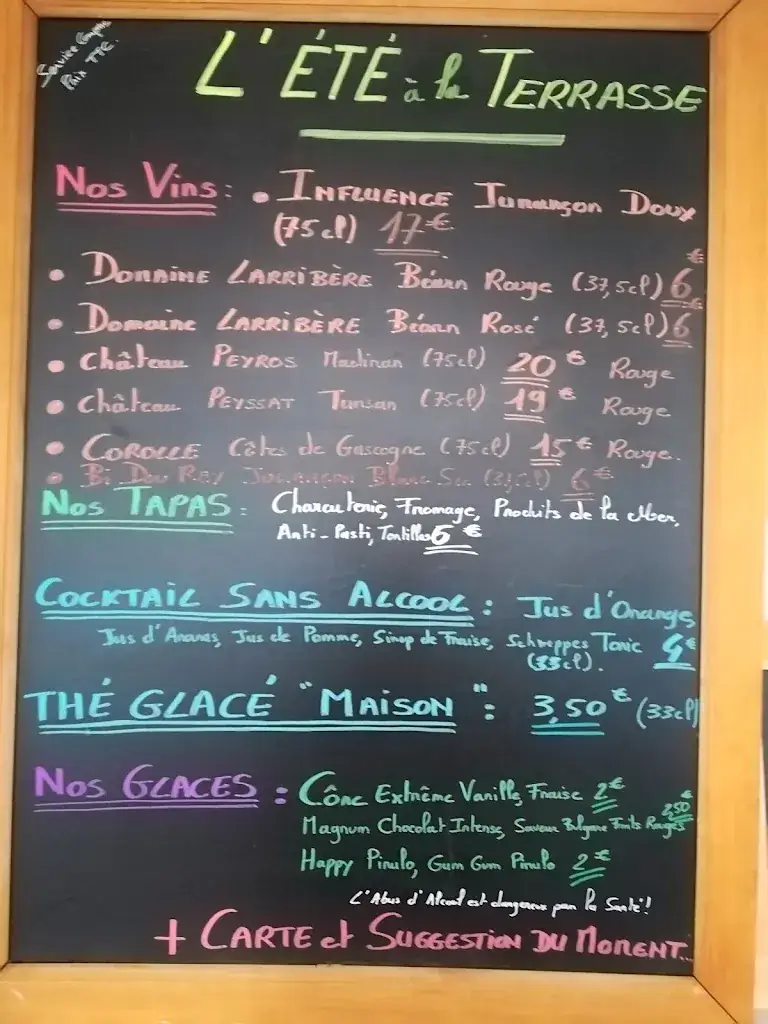 Service Compris
Prix TTC.
L'ÉTÉ à la TERRASSE
Nos Vins : • INFLUENCE Jurançon Doux
(75cl) 17€
• DOMAINE LARRIBÈRE Béarn Rouge (37,5cl) 6€
• Domaine LARRIBÈRE Béarn Rosé (37,5cl) 6€
• Château PEYROS Madiran (75cl) 20€ Rouge
• Château PEYSSAT Tursan (75cl) 19€ Rouge
• COROLLE Côtes de Gascogne (75cl) 15€ Rouge.
• Bi Dou Rey Jurançon Blanc Sec 6€
Nos TAPAS : Charcuterie, Fromage, Produits de la Mer,
Anti-Pasti, Tortillas 6€
COCKTAIL SANS ALCOOL : Jus d'Orange,
Jus d'Ananas, Jus de Pomme, Sirop de Fraise, Schweppes Tonic 4€
(33cl).
THÉ GLACÉ "MAISON" : 3,50€ (33cl)
Nos GLACES : Cône Extrême Vanille, Fraise 2€
Magnum Chocolat Intense, Saveur Bulgare Fruits Rouges 2,50€
Happy Pirulo, Gum Gum Pirulo 2€
L'Abus d'Alcool est dangereux pour la Santé!
+ CARTE et SUGGESTION DU MOMENT...